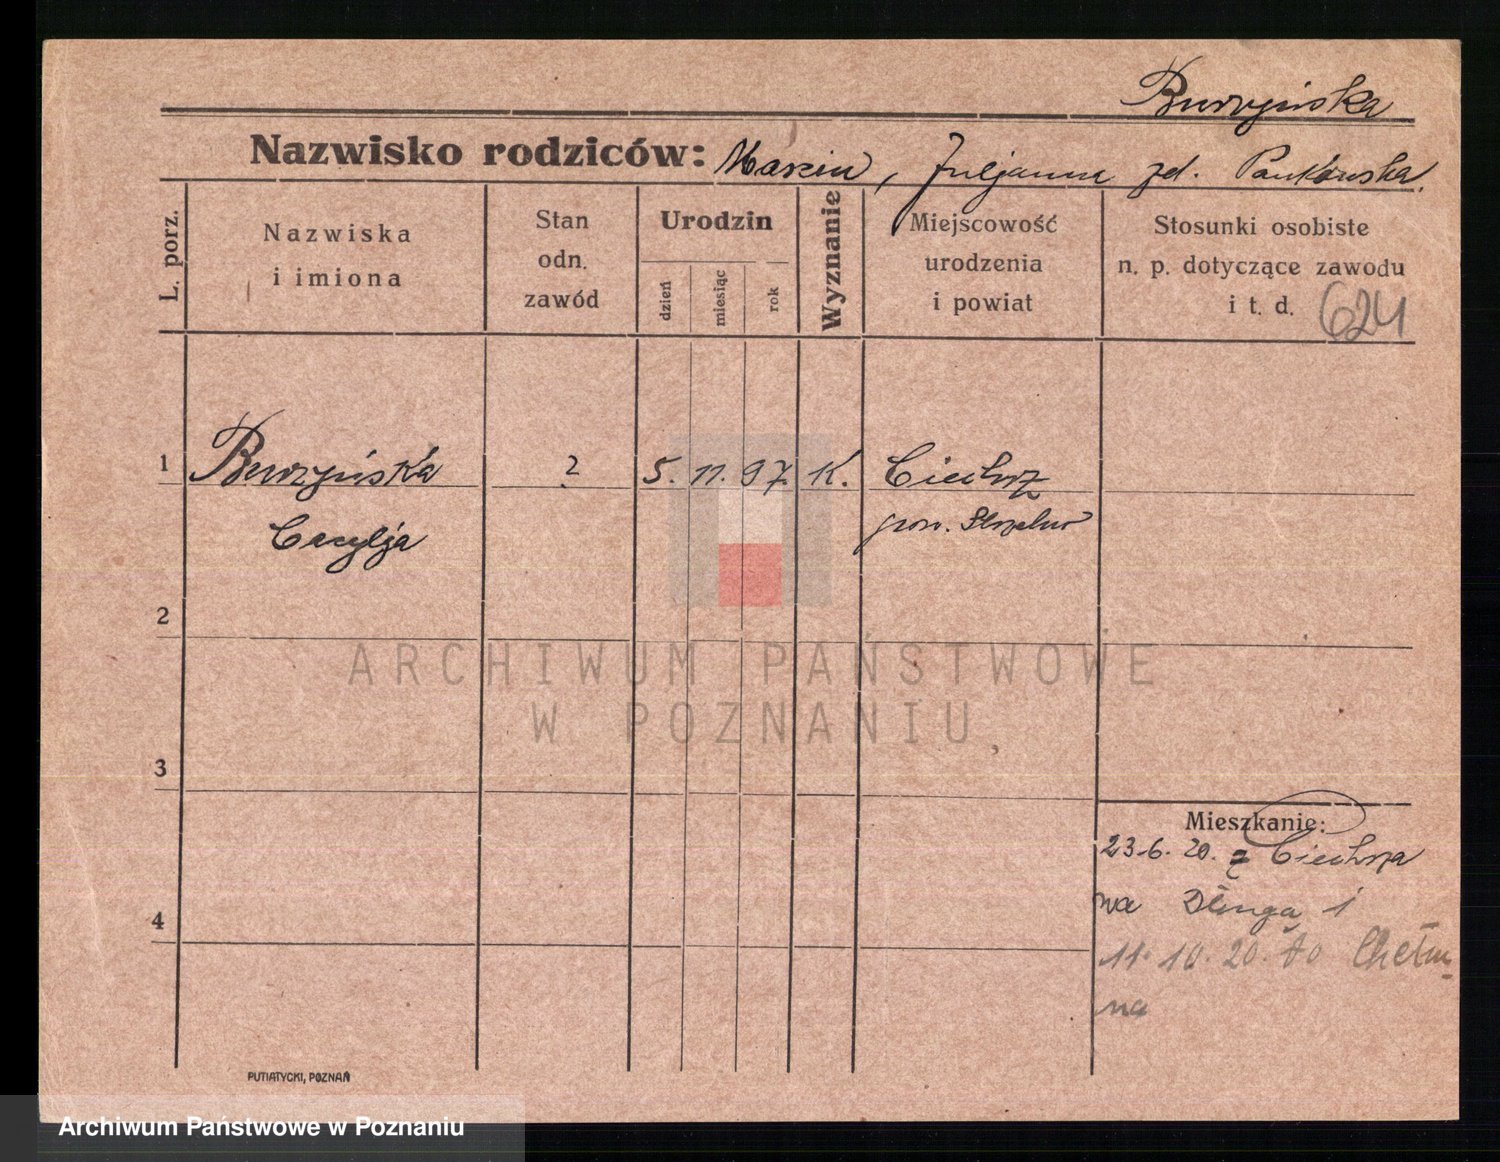 Burzyńska
Nazwisko rodziców: Marcin, Juljanna zd. Pankowska.
L. porz.
Nazwiska
i imiona
Stan
odn.
zawód
Urodzin
dzień
miesiąc
rok
Wyznanie
Miejscowość
urodzenia
i powiat
Stosunki osobiste
n. p. dotyczące zawodu
i t. d. 624
1 Burzyńska ? 5. 11. 97. K. Ciechrz
Cecylja pow. Strzelno
2
ARCHIWUM PAŃSTWOWE
W POZNANIU
3
Mieszkanie:
23.6.20. z Ciechrza
4 na Długą 1
11.10.20. do Chełm
na
PUTIATYCKI, POZNAŃ
Archiwum Państwowe w Poznaniu